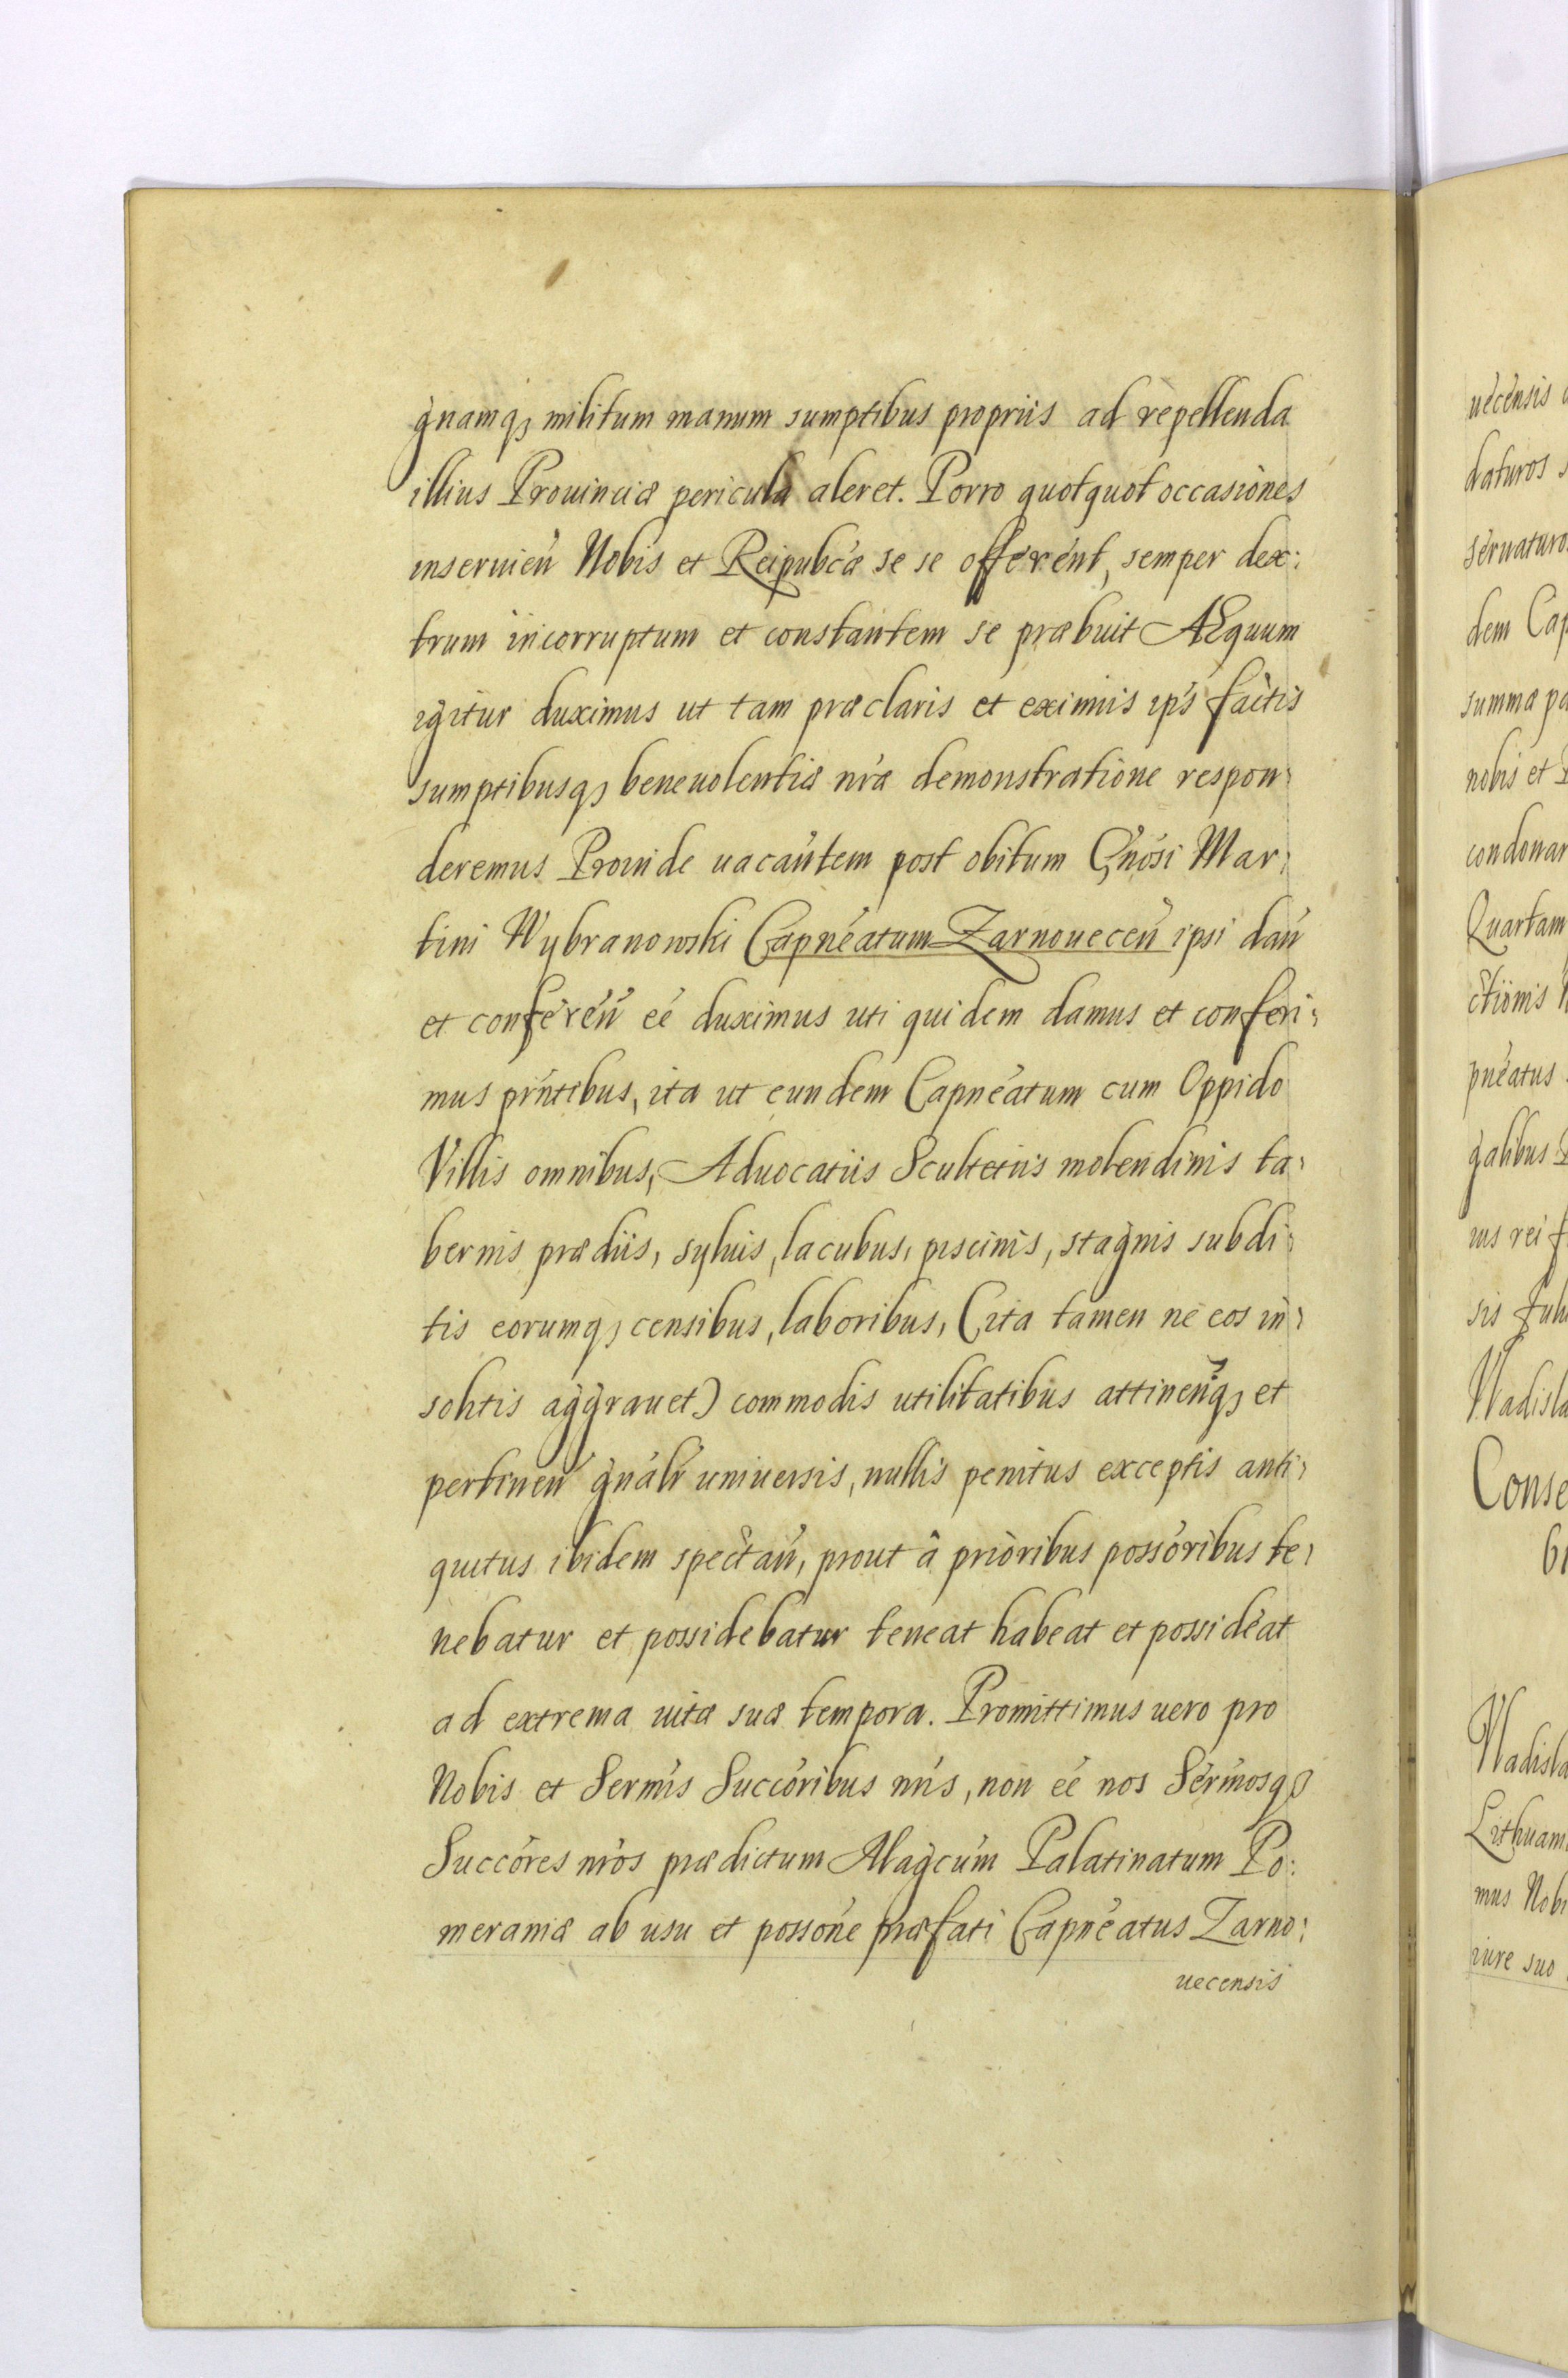 gnamq3 militum manum sumptibus propriis ad repellenda
illius Prouinciæ pericula aleret. Porro quotquot occasiones
inseruień Nobis et Reipubcæ se se offerent, semper dex:
trum incorruptum et constantem se præbuit Æquum
igitur duximus ut tam præclaris et eximiis ips factis
sumptibusq3 beneuolentiæ nræ demonstratione respon:
deremus Prouide uacantem post obitum Gnosi Mar:
tini Wybranowski Capneatum Zarnoueceń ipsi dań
et confereń eé duximus uti quidem damus et conferi:
mus prntibus, ita ut eundem Capneatum cum Oppido
Villis omnibus, Aduocatiis Scultetiis molendinis ta:
bernis prædiis, syluis, lacubus, piscinis, stagnis subdi:
tis eorumq3 censibus, laboribus, (ita tamen ne eos in:
solitis aggrauet) commodis utilitatibus attineńq3 et
pertineń gnalr uniuersis, nullis penitus exceptis anti:
quitus ibidem spectań, prout â prioribus possoribus te:
nebatur et possidebatur teneat habeat et possideat
ad extrema uitæ suæ tempora. Promittimus uero pro
Nobis et Sermis Succoribus nris, non eé nos Sermosq3
Succores nros prædictum Magcum Palatinatum Po:
meraniæ ab usu et possone præfati Capneatus Zarno:
uecensis
uecensis
daturos
seruaturo
dem Cap
summæ pa
nobis et
condonar
Quartam
ctionis
pneatus
galibus
ius rei f
sis
Wladisla
Conse
Wladisla
Lithuam
mus Nobi
iure suo